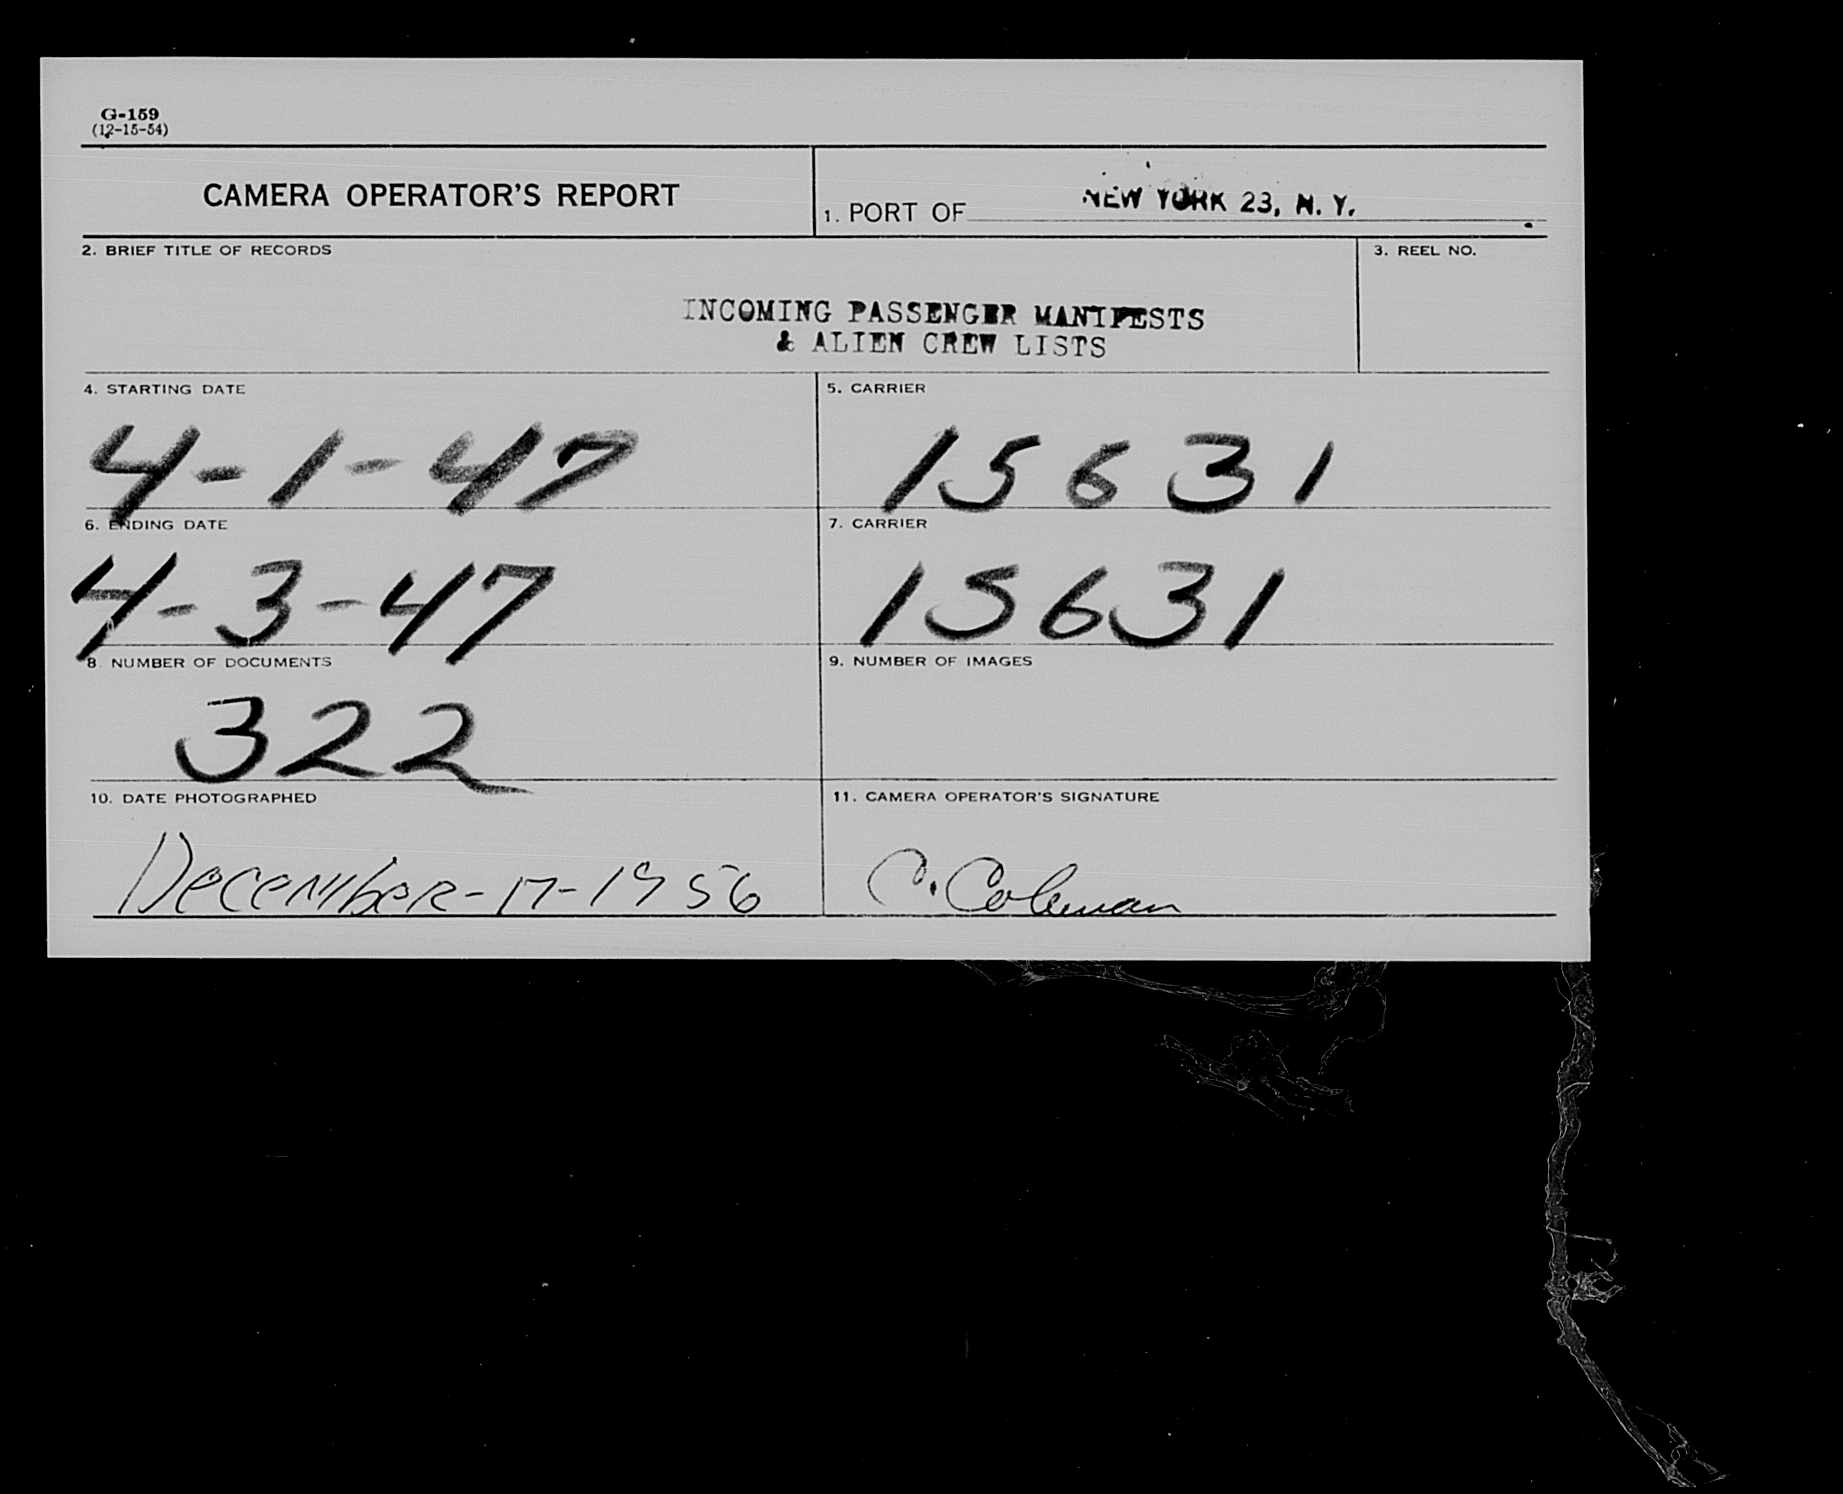 G-159
(12-15-54)
CAMERA OPERATOR'S REPORT
1. PORT OF NEW YORK 23, N. Y.
2. BRIEF TITLE OF RECORDS
3. REEL NO.
INCOMING PASSENGER MANIFESTS
& ALIEN CREW LISTS
4. STARTING DATE
5. CARRIER
4-1-47
15631
6. ENDING DATE
7. CARRIER
4-3-47
15631
8. NUMBER OF DOCUMENTS
9. NUMBER OF IMAGES
322
10. DATE PHOTOGRAPHED
11. CAMERA OPERATOR'S SIGNATURE
December-17-1956
C. Coleman